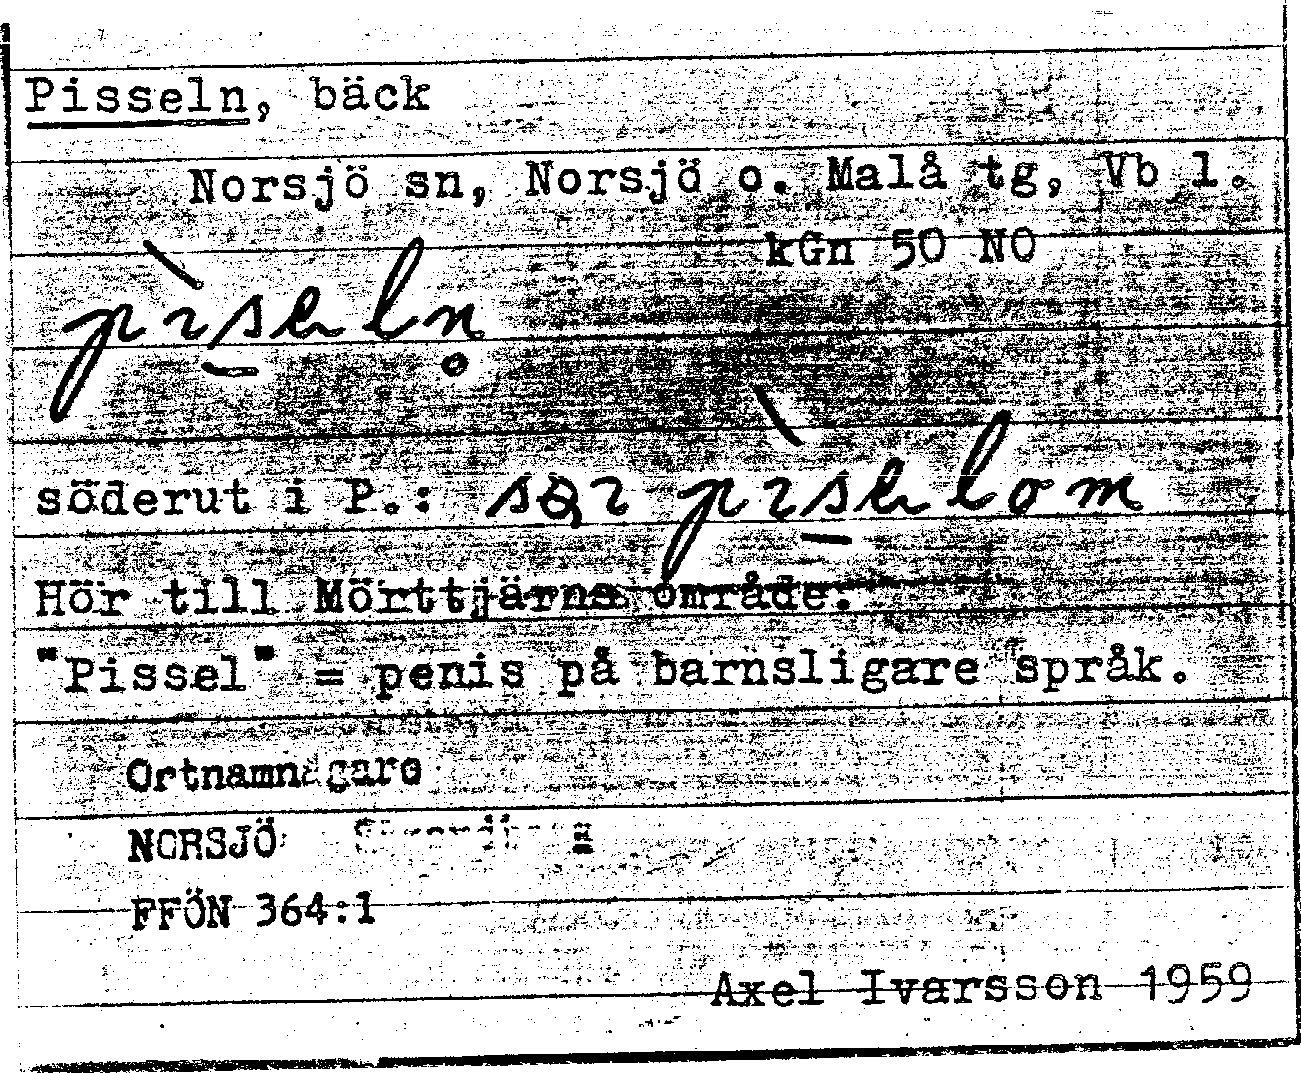 Pisseln, bäck
Norsjö sn, Norsjö o. Malå tg, Vb l.
kGn 50 NO
pìse̱ln̥
söderut i P.: pìse̱lom
Hör till Mörttjärns område.
"Pissel" = penis på barnsligare språk.
Ortnamnägare
NORSJÖ
FFÖN 364:1
Axel Ivarsson 1959